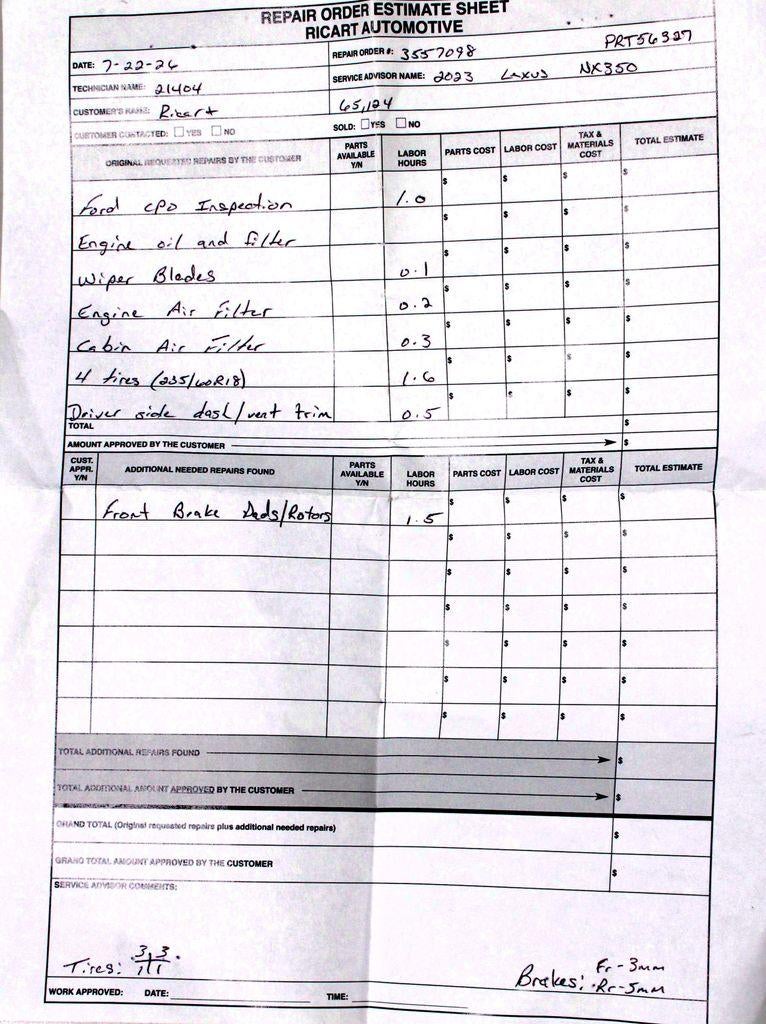 REPAIR ORDER ESTIMATE SHEET
RICART AUTOMOTIVE
PRT56327
DATE: 7-22-26 REPAIR ORDER #: 3557098
TECHNICIAN NAME: 21404 SERVICE ADVISOR NAME: 2023 Lexus NX350
CUSTOMER'S NAME: Ricart 65,124
CUSTOMER CONTACTED: YES NO SOLD: YES NO
ORIGINAL REQUESTED REPAIRS BY THE CUSTOMER PARTS AVAILABLE Y/N LABOR HOURS PARTS COST LABOR COST TAX & MATERIALS COST TOTAL ESTIMATE
Ford CPO Inspection 1.0 $ $ $ $
Engine oil and filter $ $ $ $
Wiper Blades 0.1 $ $ $ $
Engine Air Filter 0.2 $ $ $ $
Cabin Air Filter 0.3 $ $ $ $
4 tires (235/60R18) 1.6 $ $ $ $
Driver side dash/vent trim 0.5 $ $ $ $
TOTAL $
AMOUNT APPROVED BY THE CUSTOMER $
CUST. APPR. Y/N ADDITIONAL NEEDED REPAIRS FOUND PARTS AVAILABLE Y/N LABOR HOURS PARTS COST LABOR COST TAX & MATERIALS COST TOTAL ESTIMATE
Front Brake Pads/Rotors 1.5 $ $ $ $
$ $ $ $
$ $ $ $
$ $ $ $
$ $ $ $
$ $ $ $
$ $ $ $
TOTAL ADDITIONAL REPAIRS FOUND $
TOTAL ADDITIONAL AMOUNT APPROVED BY THE CUSTOMER $
GRAND TOTAL (Original requested repairs plus additional needed repairs) $
GRAND TOTAL AMOUNT APPROVED BY THE CUSTOMER $
SERVICE ADVISOR COMMENTS:
Tires: 3 3
1 1
Brakes: Fr-3mm
Rr-5mm
WORK APPROVED: DATE: TIME: